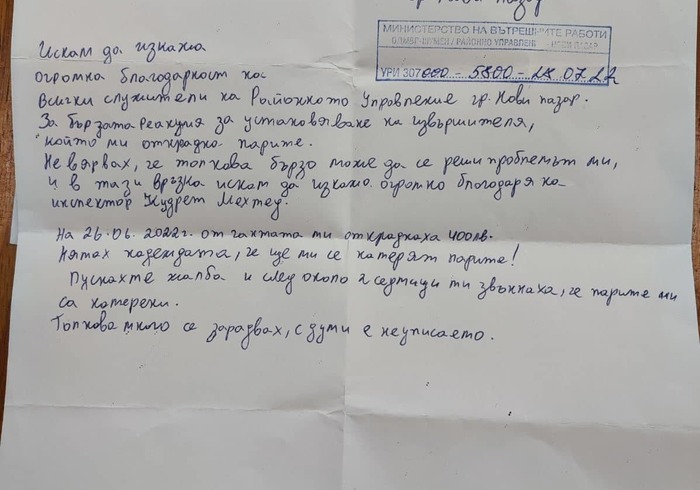 гр Нови пазар
МИНИСТЕРСТВО НА ВЪТРЕШНИТЕ РАБОТИ
ОДМВР-ШУМЕН / РАЙОННО УПРАВЛЕНИЕ - НОВИ ПАЗАР
УРИ 307000 - 5800 - 28 07 22
Искам да изкажа
огромна благодарност на
Всички служители на Районното Управление гр. Нови пазар.
За бързата реакция за установяване на извършителя,
който ми открадна парите.
Не вярвах, че толкова бързо може да се реши проблемът ми,
и в тази връзка искам да изкажа огромно благодаря на
инспектор Кудрет Мехмед.
На 26.06.2022г. от чантата ми откраднаха 400лв.
Нямах надеждата, че ще ми се намерят парите!
Пуснахме жалба и след около 2 седмици ми звъннаха, че парите ми
са намерени.
Толкова много се зарадвах, с думи е неописаемо.